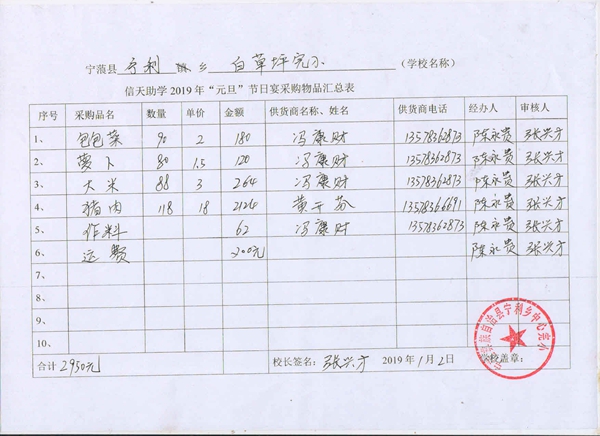 宁蒗县 宁利 镇乡 白草坪完小 （学校名称）
信天助学2019年“元旦”节日宴采购物品汇总表
序号 采购品名 数量 单价 金额 供货商名称、姓名 供货商电话 经办人 审核人
1、 包包菜 90 2 180 冯康财 13578362873 陈永贵 张兴才
2、 萝卜 80 1.5 120 冯康财 13578362873 陈永贵 张兴才
3、 大米 88 3 264 冯康财 13578362873 陈永贵 张兴才
4、 猪肉 118 18 2124 黄 芬 13578366691 陈永贵 张兴才
5、 作料 62 冯康财 13578362873 陈永贵 张兴才
6、 运费 200元 陈永贵 张兴才
7、
8、
9、
10、
合计 2950元 校长签名： 张兴才 2019年1月2日 学校盖章：
族自治县宁利乡中心完小